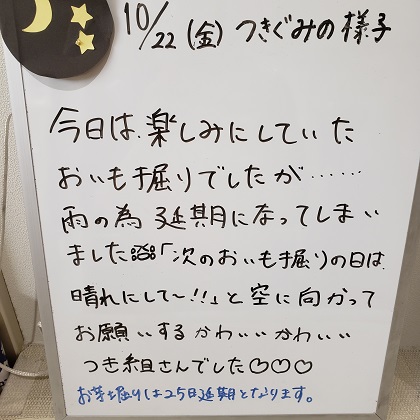 10/22(金)つきぐみの様子
今日は、楽しみにしていた
おいも掘りでしたが……
雨の為 延期になってしまい
ました 「次のおいも掘りの日は
晴れにして〜!!」と空に向かって
お願いするかわいいかわいい
つき組さんでした♡♡♡
お芋掘りは25日延期となります。